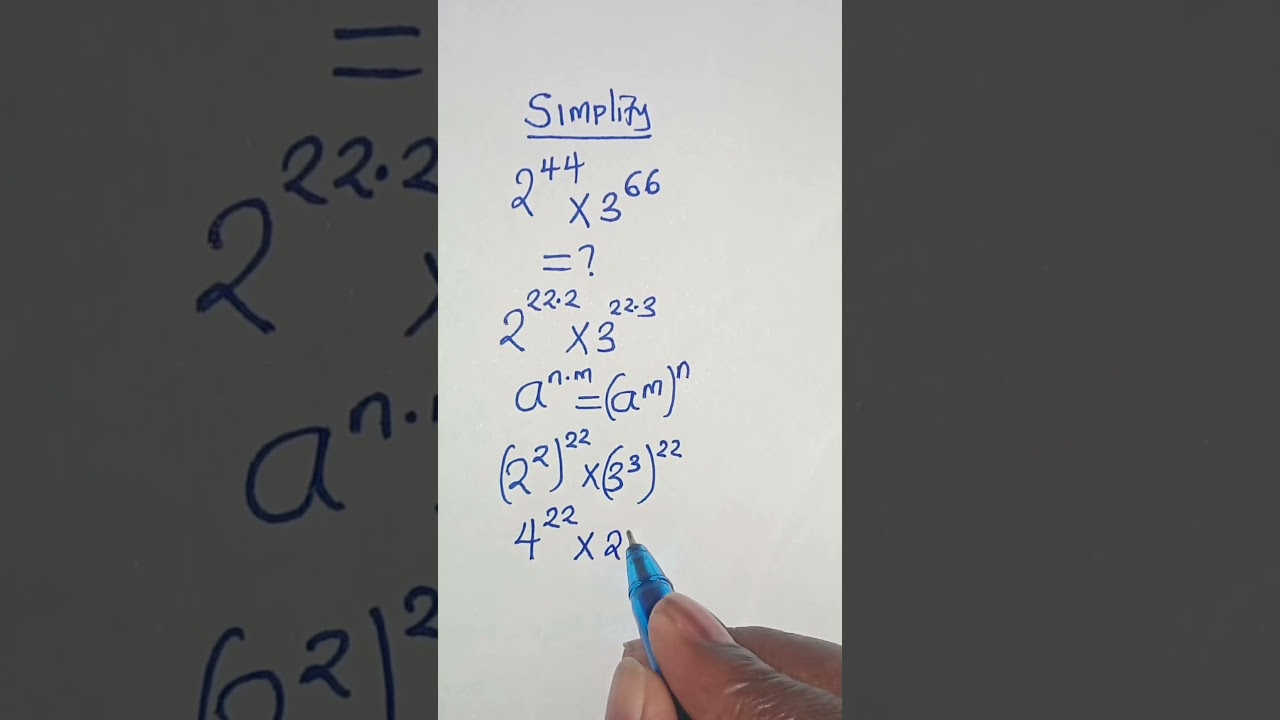 Simplify
2^44 × 3^66
= ?
2^22·2 × 3^22·3
a^n·m = (a^m)^n
(2^2)^22 × (3^3)^22
4^22 × 2